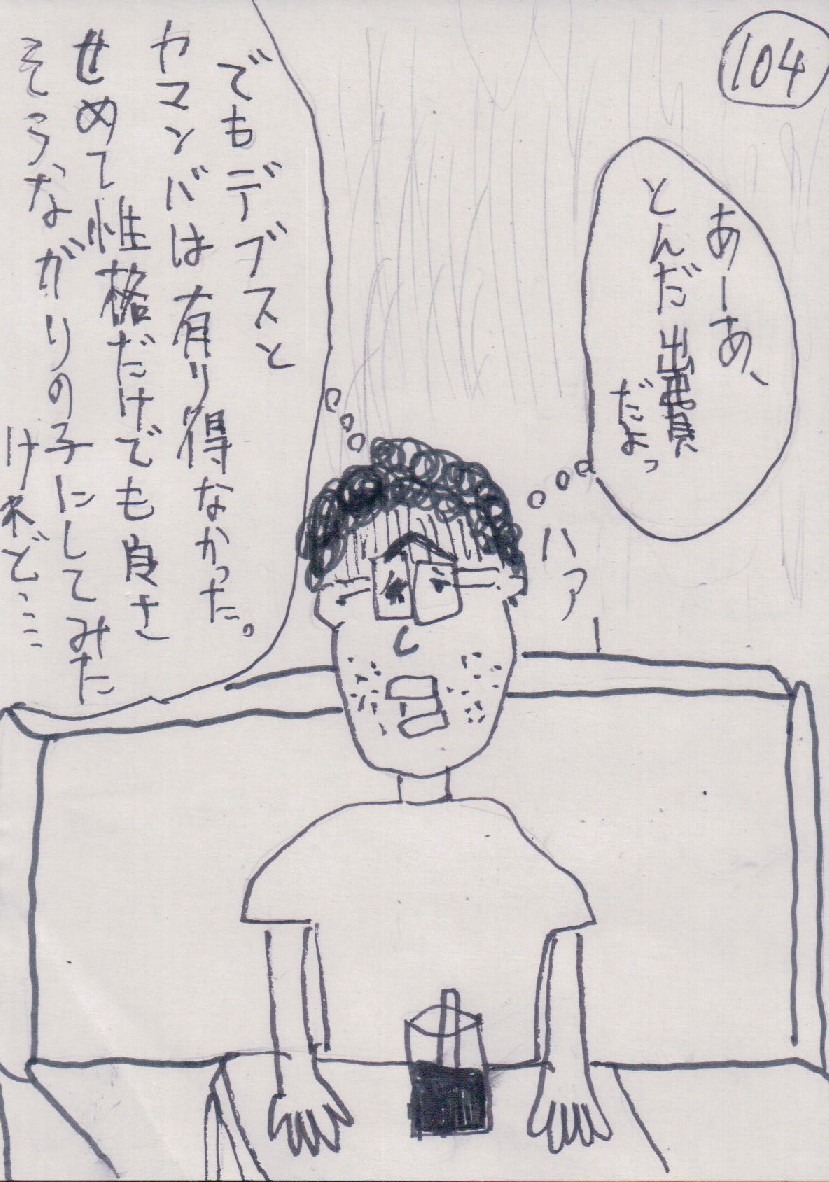 104
あーあ、
とんだ出費
だよっ
ハァー
でもデブスと
ヤマンバは有り得なかった。
せめて性格だけでも良さ
そうなガリの子にしてみた
けれど……